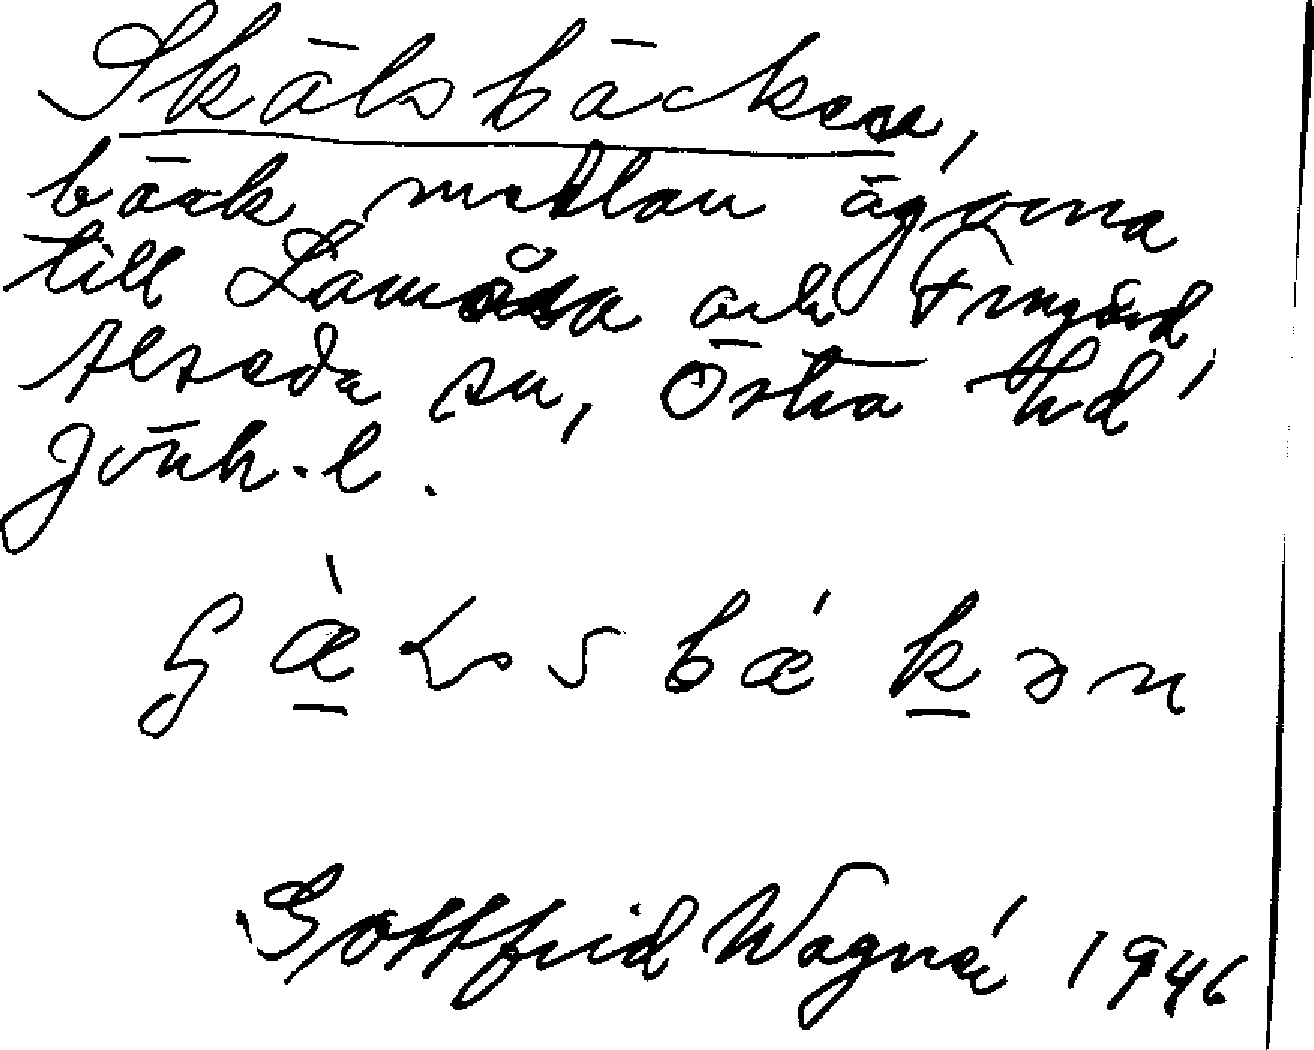 Skälsbäcken,
bäck mellan ägorna
till Lamåsa och
Alseda sn, Östra hd
Jönk. l.
Gottfrid Wagnér 1946